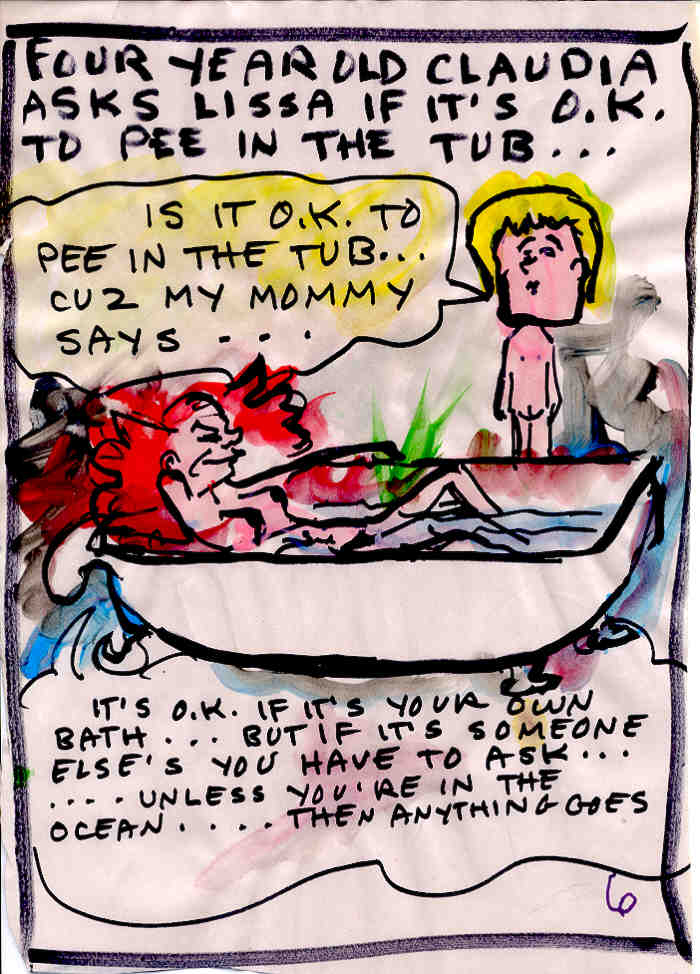 FOUR YEAR OLD CLAUDIA
ASKS LISSA IF IT'S O.K.
TO PEE IN THE TUB...
IS IT O.K. TO
PEE IN THE TUB...
CUZ MY MOMMY
SAYS - - - .
IT'S O.K. IF IT'S YOUR OWN
BATH... BUT IF IT'S SOMEONE
ELSE'S YOU HAVE TO ASK...
....UNLESS YOU'RE IN THE
OCEAN.....THEN ANYTHING GOES
6